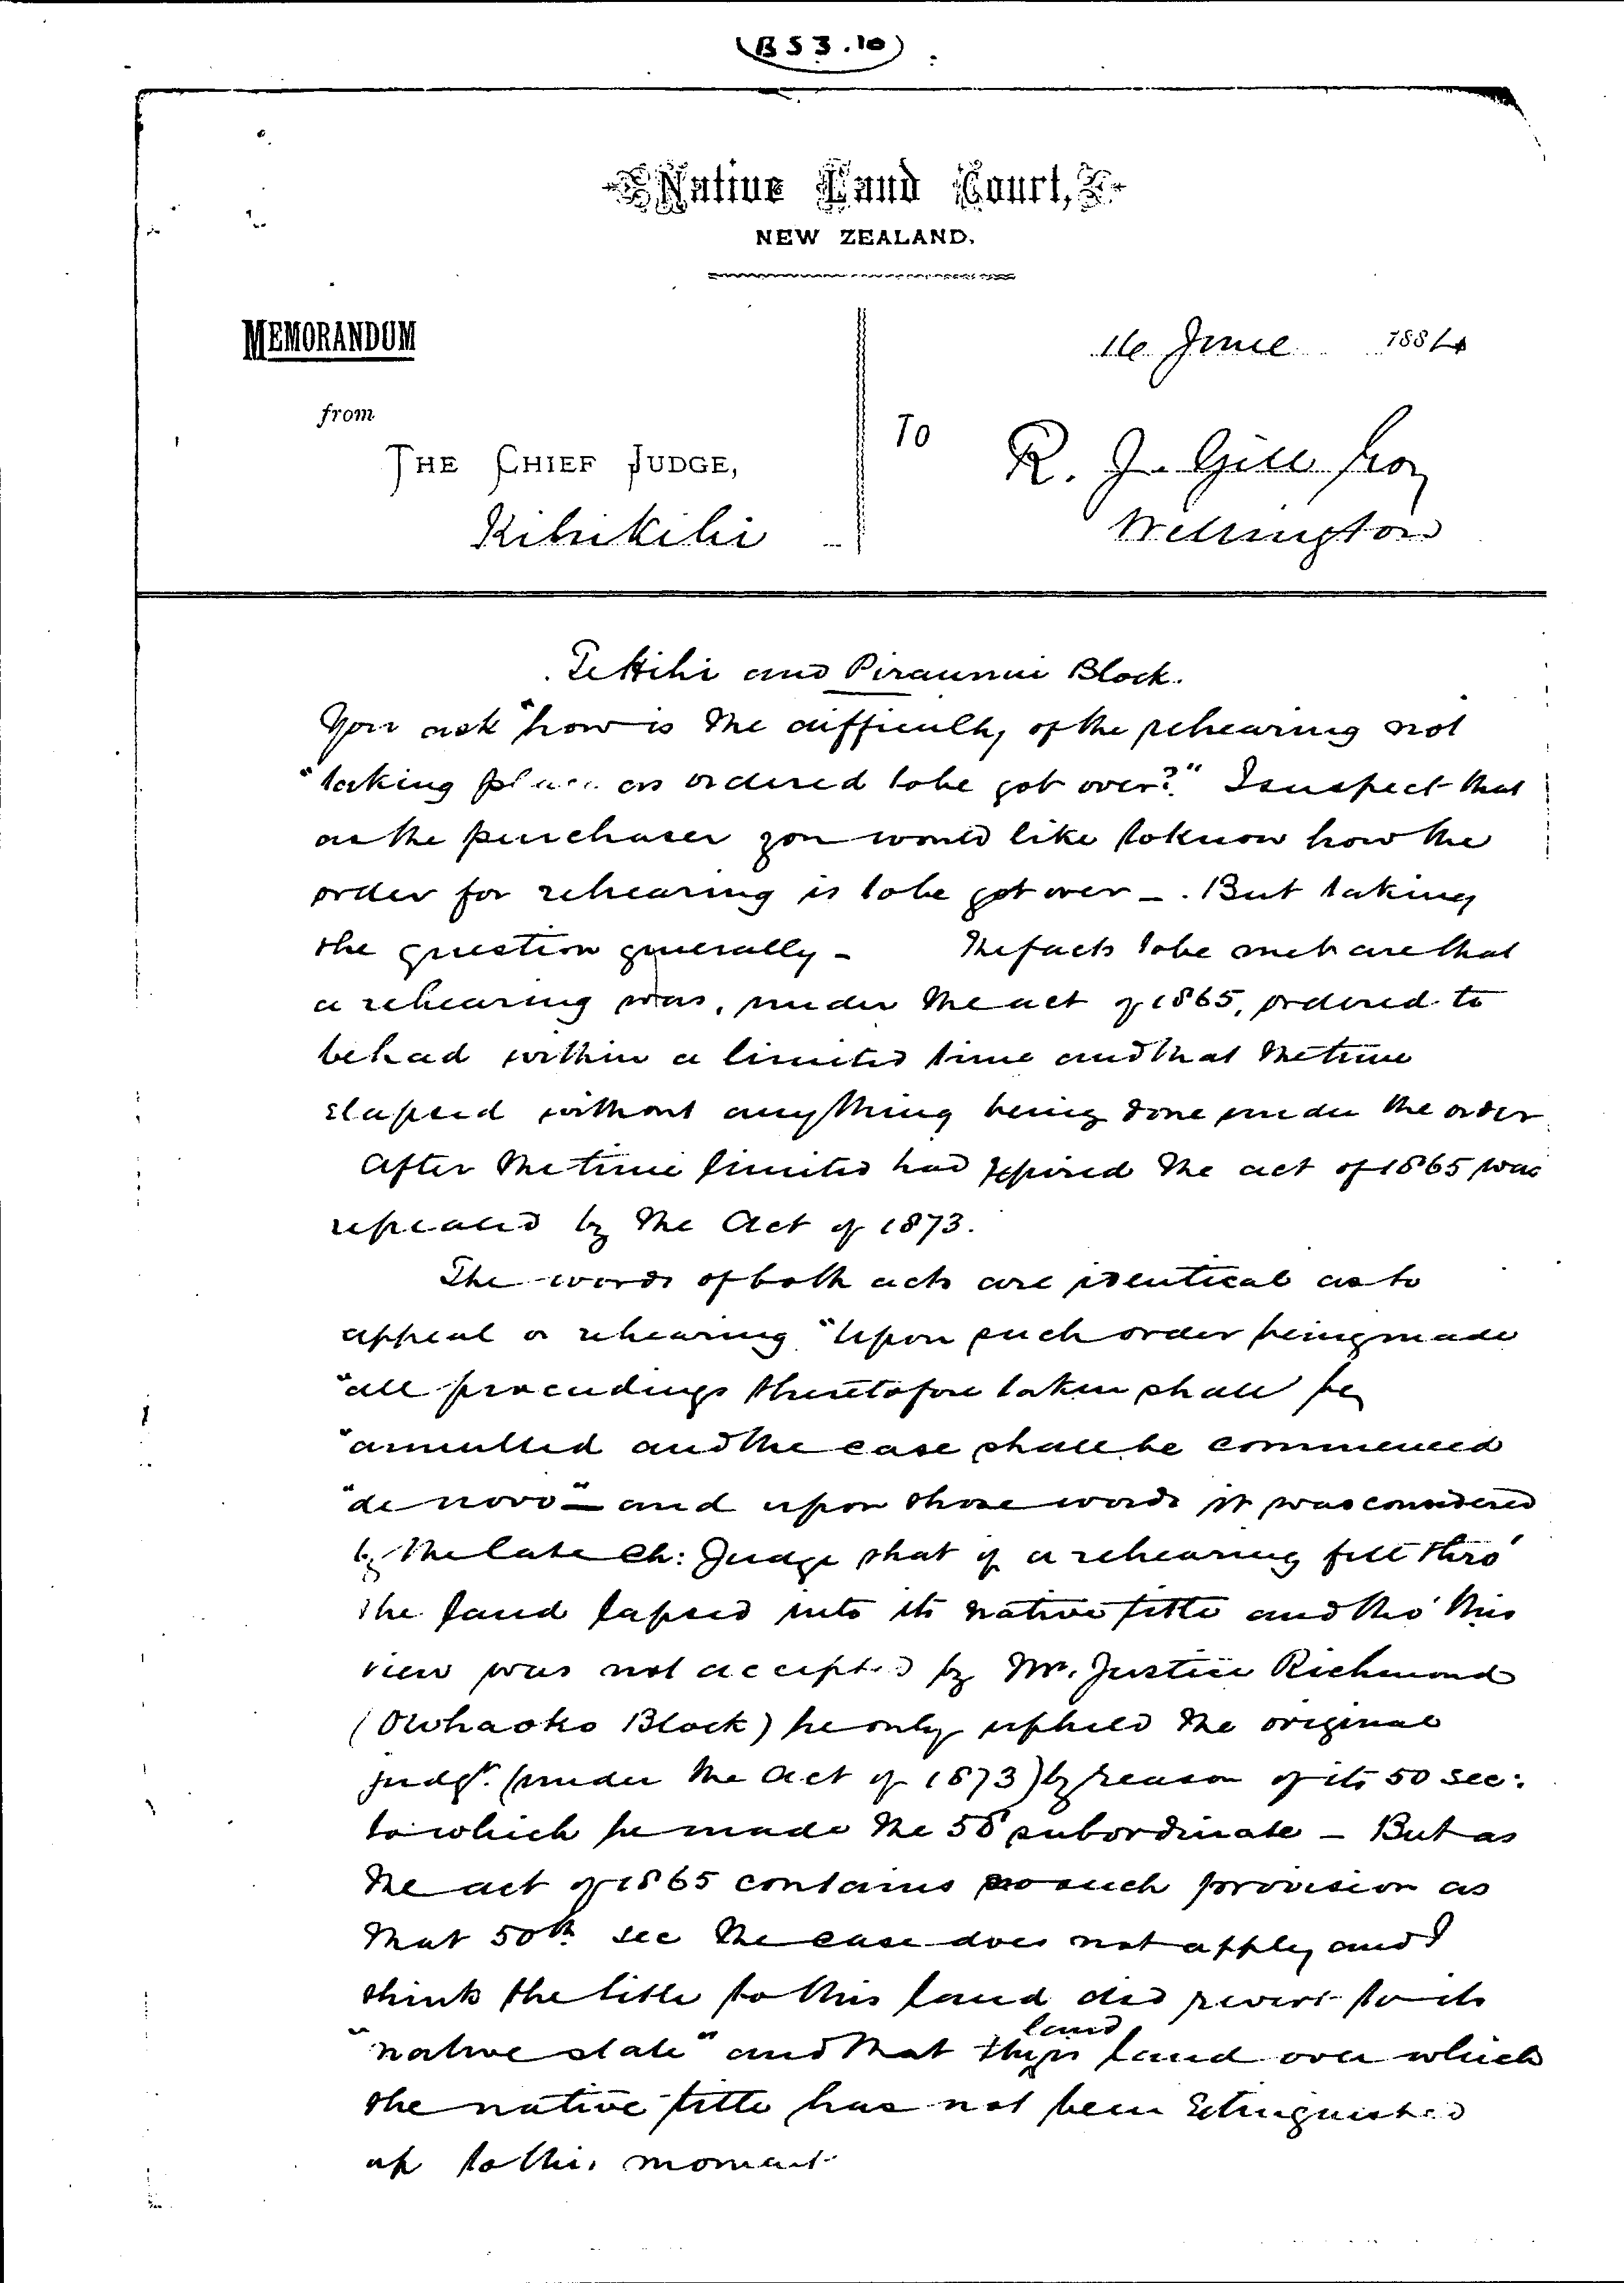 (B 53.10)
Native Land Court,
NEW ZEALAND.
MEMORANDUM
from
THE CHIEF JUDGE,
Kihikihi
16 June 1884
To
R. J. Gill Esq
Wellington
Te Hihi and Piraunui Block.
You ask "how is the difficulty of the rehearing not
"taking place as ordered to be got over?" I suspect that
as the purchaser you would like to know how the
order for rehearing is to be got over –. But taking
the question generally – The facts to be met are that
a rehearing was, under the act of 1865, ordered to
be had within a limited time and that the time
elapsed without anything being done under the order
After the time limited had expired the act of 1865 was
repealed by the Act of 1873.
The words of both acts are identical as to
appeal or rehearing "Upon such order being made
"all proceedings theretofore taken shall be
"annulled and the case shall be commenced
"de novo" – and upon those words it was considered
by the late Ch: Judge that if a rehearing fell thro'
the land lapsed into its native title and tho' this
view was not accepted by Mr. Justice Richmond
(Owhaoko Block) he only upheld the original
judgt. (under the Act of 1873) by reason of its 50 sec:
to which he made the 58 subordinate – But as
the act of 1865 contains no such provision as
that 50th sec the case does not apply and I
think the title to this land did revert to its
"native state" and that land over which
the native title has not been Extinguished
up to this moment